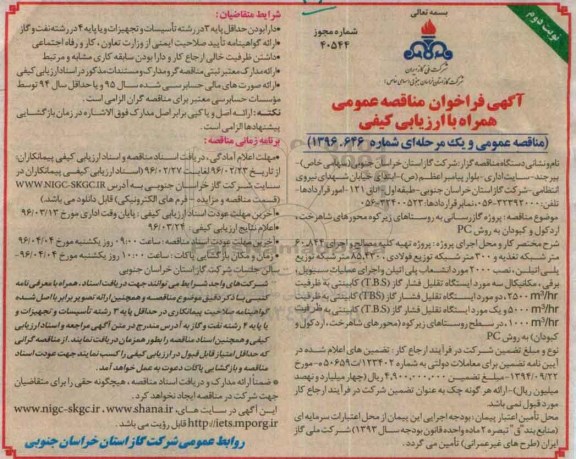 بسمه تعالی
نوبت دوم
شماره مجوز
۴۰۵۴۴
شرکت ملی گاز ایران
شرکت گاز استان خراسان جنوبی (سهامی خاص)
آگهی فراخوان مناقصه عمومی
همراه با ارزیابی کیفی
(مناقصه عمومی و یک مرحله‌ای شماره ۶۴۶-۱۳۹۶)
نام و نشانی دستگاه مناقصه گزار: شرکت گاز استان خراسان جنوبی (سهامی خاص)-
بیرجند-سایت اداری-بلوار پیامبر اعظم(ص)-ابتدای خیابان شهدای نیروی
انتظامی-شرکت گاز استان خراسان جنوبی-طبقه اول-اتاق ۱۲۱-امور قراردادها-
تلفن: ۳۲۳۹۲۰۰۰-۰۵۶ نمابر قراردادها: ۳۲۴۰۰۵۲۳-۰۵۶
موضوع مناقصه: پروژه گازرسانی به روستاهای زیرکوه محورهای شاهرخت،
آردکول و کبودان به روش PC
شرح مختصر کار و محل اجرای پروژه: پروژه تهیه کلیه مصالح و اجرای
متر شبکه تغذیه و ۳۰۰ متر شبکه توزیع فولادی، ۸۵,۴۲۰ متر شبکه توزیع
پلی اتیلن، نصب ۲۰۰۰ مورد انشعاب پلی اتیلن و اجرای عملیات سیویل،
برقی، مکانیکال سه مورد ایستگاه تقلیل فشار گاز (T.B.S) کابینتی به ظرفیت
۲۵۰۰ m³/hr، دو مورد ایستگاه تقلیل فشار گاز (TBS) کابینتی به ظرفیت
۵۰۰۰ m³/hr و یک مورد ایستگاه تقلیل فشار گاز (T.B.S) کابینتی به ظرفیت
۱۰۰۰۰ m³/hr، در سطح روستاهای زیرکوه (محورهای شاهرخت، آردکول و
کبودان) به روش PC
نوع و مبلغ تضمین شرکت در فرآیند ارجاع کار: تضمین های اعلام شده در
آیین نامه تضمین برای معاملات دولتی به شماره ۱۲۳۴۰۲/ت۵۰۶۵۹ه مورخ
۱۳۹۴/۰۹/۲۲-مبلغ تضمین ۴,۹۰۰,۰۰۰,۰۰۰ ریال (چهار میلیارد و نهصد
میلیون ریال)-ارائه هر گونه چک به عنوان تضمین شرکت در فرآیند ارجاع کار
مورد قبول نمی باشد.
محل تأمین اعتبار پیمان: بودجه اجرایی این پیمان از محل اعتبارات سرمایه ای
(منابع بند "ق" تبصره ۲ ماده واحده قانون بودجه سال ۱۳۹۳) شرکت ملی گاز
ایران (طرح های غیر عمرانی) تأمین می گردد.
شرایط متقاضیان:
•دارا بودن حداقل پایه ۳ در رشته تأسیسات و تجهیزات و یا پایه ۴ در رشته نفت و گاز
•ارائه گواهینامه تأیید صلاحیت ایمنی از وزارت تعاون، کار و رفاه اجتماعی
•داشتن ظرفیت خالی ارجاع کار و دارا بودن سابقه کاری مشابه و مرتبط
•ارائه مدارک معتبر ثبتی مناقصه گر و مدارک و مستندات مذکور در اسناد ارزیابی کیفی
•ارائه صورت های مالی حسابرسی شده سال ۹۵ و یا حداقل سال ۹۴ توسط
مؤسسات حسابرسی معتبر برای مناقصه گران الزامی است.
نکته: ارائه اصل و یا کپی برابر اصل مدارک فوق الاشاره در زمان بازگشایی
پیشنهادها الزامی است.
برنامه زمانی مناقصه:
•مهلت اعلام آمادگی، دریافت اسناد مناقصه و اسناد ارزیابی کیفی پیمانکاران:
از تاریخ ۹۶/۰۲/۲۳ لغایت ۹۶/۰۲/۲۷ (اسناد ارزیابی کیفی پیمانکاران در
سایت شرکت گاز خراسان جنوبی به آدرس WWW.NIGC-SKGC.IR
(قسمت مناقصه و مزایده - فرم های الکترونیکی) قابل دانلود می باشد)
•آخرین مهلت عودت اسناد ارزیابی کیفی: پایان وقت اداری مورخ ۹۶/۰۳/۱۳
•اعلام نتایج ارزیابی کیفی: ۹۶/۰۳/۲۴
•آخرین مهلت عودت اسناد مناقصه: ساعت ۰۹:۰۰ روز یکشنبه مورخ ۹۶/۰۴/۰۴
•زمان و مکان بازگشایی پاکات: ساعت ۱۰:۰۰ روز یکشنبه مورخ ۹۶/۰۴/۰۴-
سالن جلسات شرکت گاز استان خراسان جنوبی
شرکت های واجد شرایط می توانند جهت دریافت اسناد، همراه با معرفی نامه
کتبی با ذکر دقیق موضوع مناقصه و همچنین ارائه تصویر برابر با اصل شده
گواهینامه صلاحیت پیمانکاری در حداقل پایه ۳ رشته تأسیسات و تجهیزات و
یا پایه ۴ رشته نفت و گاز به آدرس مندرج در متن آگهی مراجعه و اسناد ارزیابی
کیفی و همچنین اسناد مناقصه را بطور همزمان دریافت نمایند. از مناقصه گرانی
که حداقل امتیاز قابل قبول در ارزیابی کیفی را کسب نمایند جهت عودت اسناد
مناقصه و بازگشایی پاکات دعوت به عمل خواهد آمد.
•ضمناً ارائه مدارک و دریافت اسناد مناقصه، هیچگونه حقی را برای متقاضیان
جهت شرکت در مناقصه ایجاد نخواهد کرد.
این آگهی در سایت های، www.nigc-skgc.ir ، www.shana.ir
http://iets.mporg.ir قابل رؤیت می باشد.
روابط عمومی شرکت گاز استان خراسان جنوبی